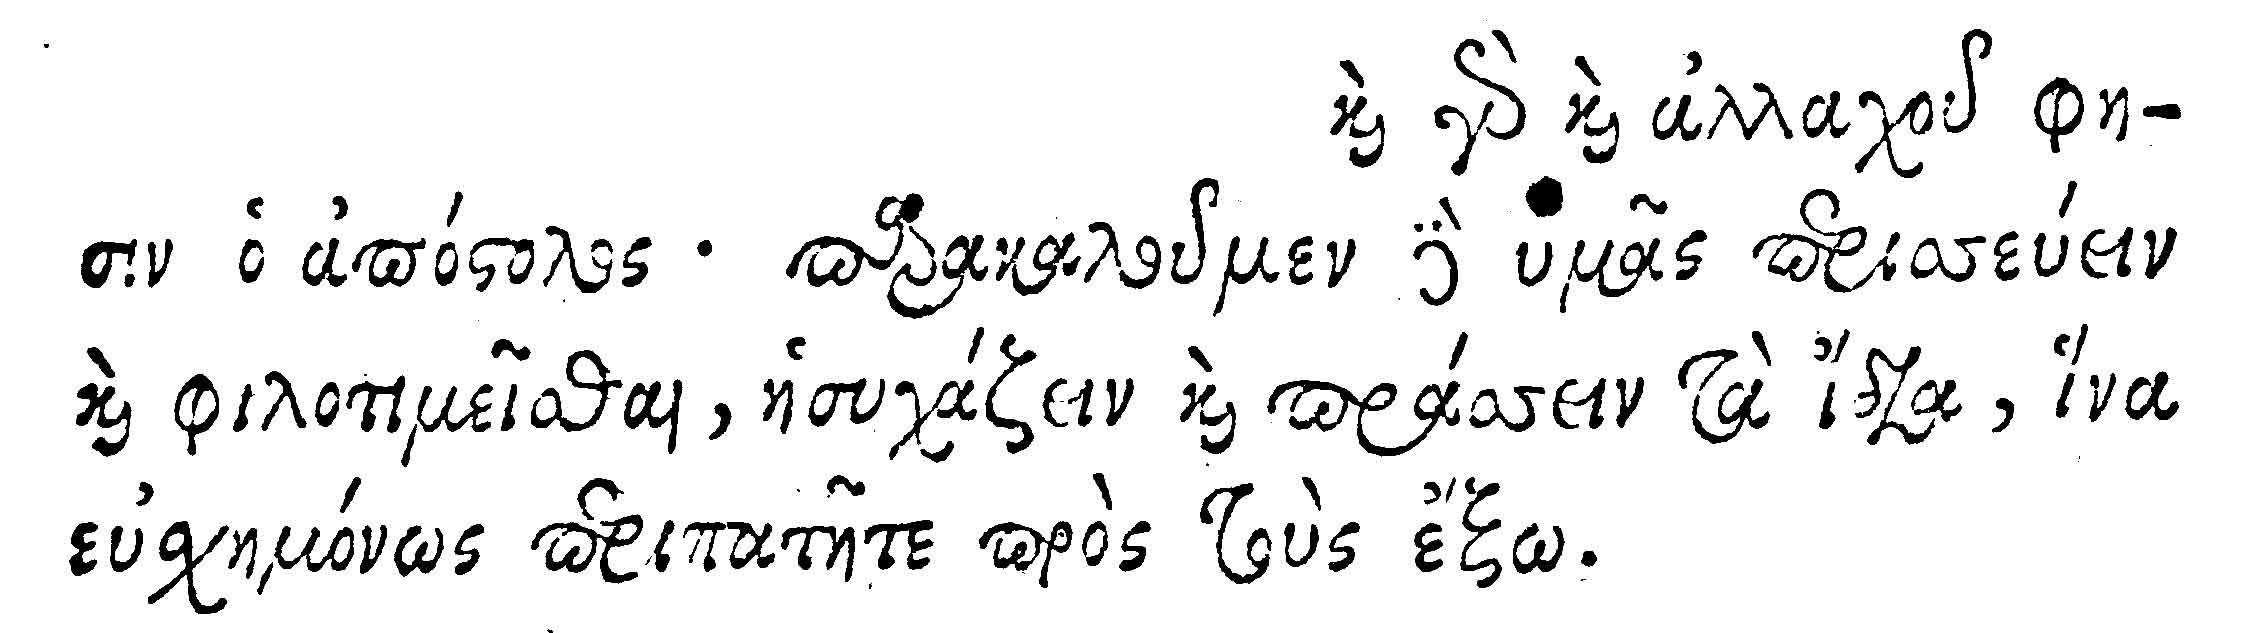 καὶ γὰρ καὶ ἀλλαχοῦ φη-
σιν ὁ ἀπόστολος · παρακαλοῦμεν δὲ ὑμᾶς περισσεύειν
καὶ φιλοτιμεῖσθαι, ἡσυχάζειν καὶ πράσσειν τὰ ἴδια, ἵνα
εὐσχημόνως περιπατῆτε πρὸς τοὺς ἔξω.